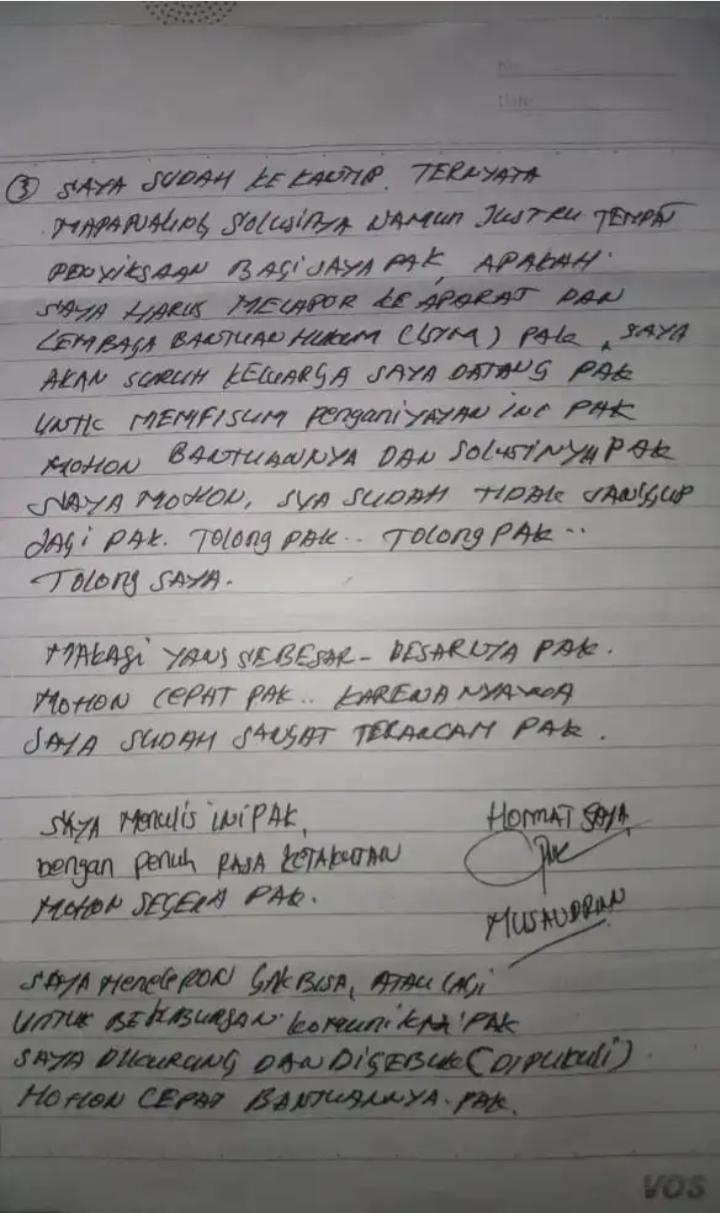 No:
Date:
③ SAYA SUDAH KE KANTIP. TERNYATA
SOLUSINYA NAMUN JUSTRU TEMPAT
PENYIKSAAN BAGI SAYA PAK, APAKAH
SAYA HARUS MELAPOR KE APARAT DAN
LEMBAGA BANTUAN HUKUM (LSM) PAK, SAYA
AKAN SURUH KELUARGA SAYA DATANG PAK
UNTK MEMFISUM PENGANIYAYAN INI PAK
MOHON BANTUANNYA DAN SOLUSINYA PAK
SAYA MOHON, SYA SUDAH TIDAK SANGGUP
LAGI PAK. TOLONG PAK.. TOLONG PAK..
TOLONG SAYA.
MAKASI YANG SEBESAR-BESARNYA PAK.
MOHON CEPAT PAK.. KARENA NYAWA
SAYA SUDAH SANGAT TERANCAM PAK.
SAYA Menulis INI PAK,
Dengan Penuh RASA KETAKUTAN
MOHON SEGERA PAK.
HORMAT SAYA,
MUSAUDRIN
SAYA Menelepon GAK BISA, ATAU LAGI
UNTUK komunikasi PAK
SAYA DIKURUNG DAN DIGEBUK (DIPUKULI).
MOHON CEPAT BANTUANNYA. PAK.
VOS